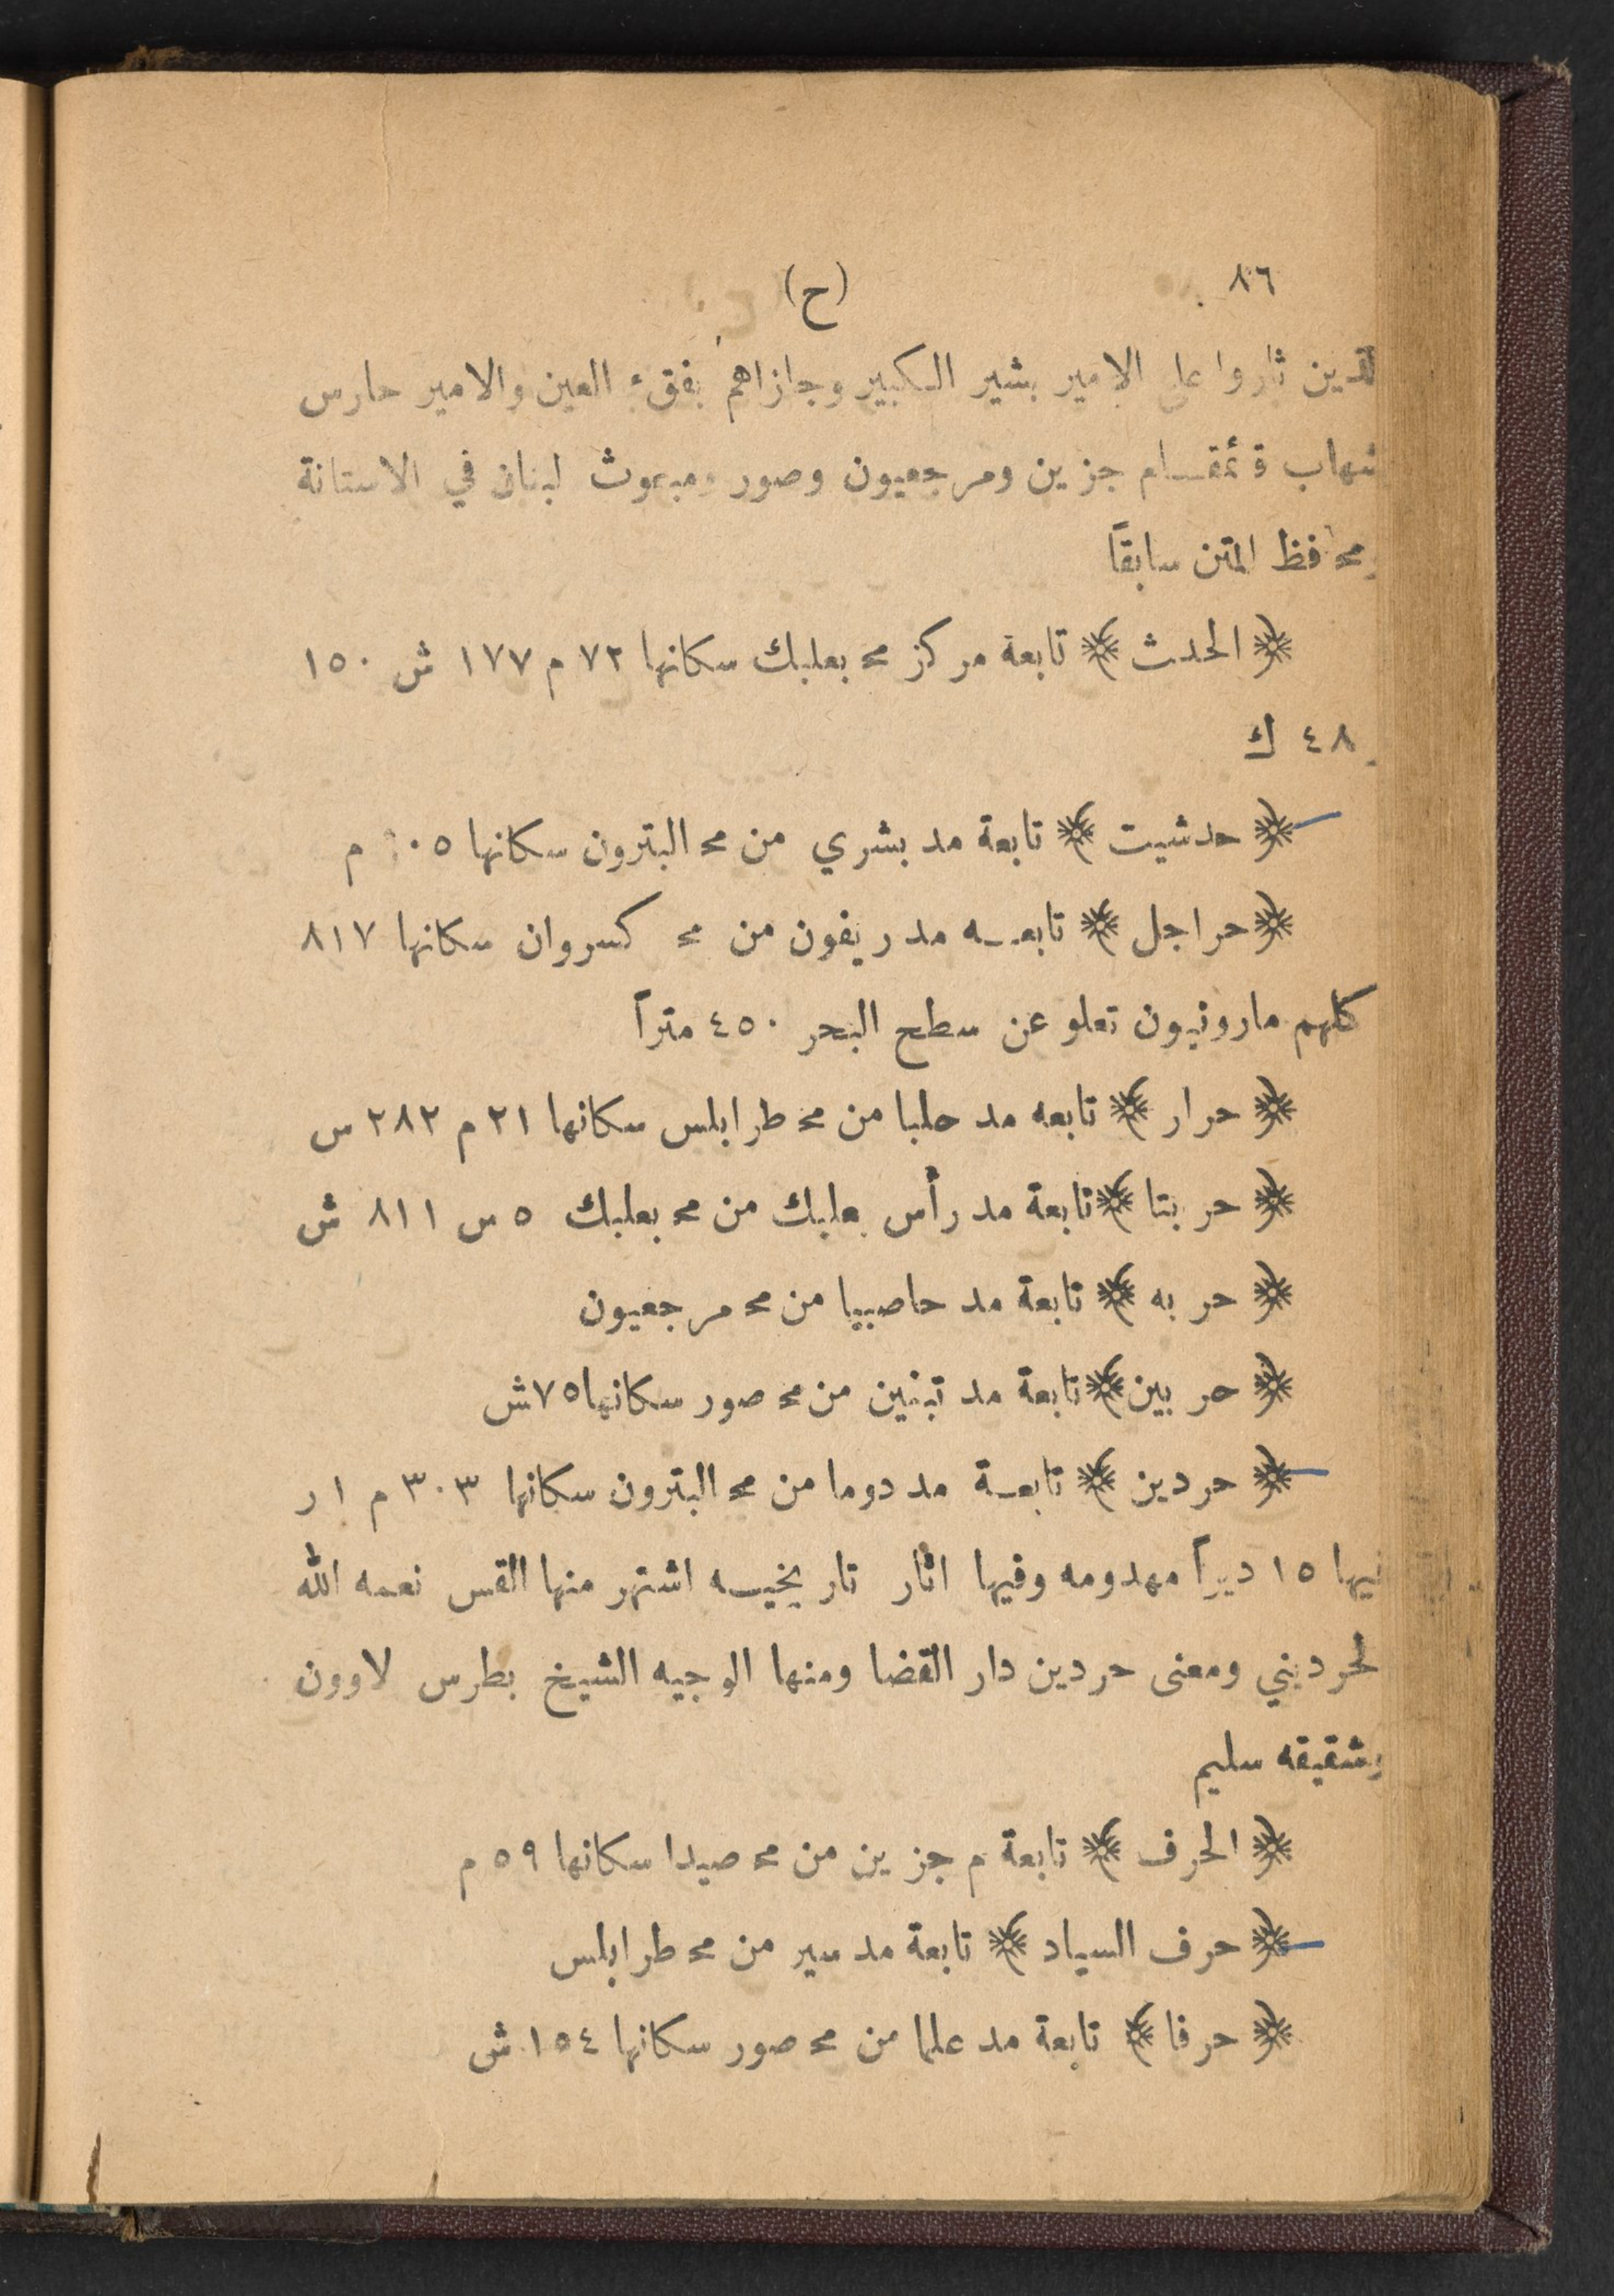 ٨٦
(ح)
الذين ثاروا على الامير بشير الكبير وجازاهم بفقء العين والامير حارس
شهاب قئمقام جزين ومرجعيون وصور ومبعوث لبنان في الاستانة
ومحافظ المتن سابقاً
﴿ الحدث ﴾ تابعة مركز مح بعلبك سكانها ٧٢ م ١٧٧ ش ١٥٠
٤٨ ك
﴿ حدشيت ﴾ تابعة مد بشري من مح البترون سكانها م
﴿ حراجل ﴾ تابعه مد ريفون من مح كسروان سكانها ٨١٧
كلهم مارونيون تعلو عن سطح البحر ٤٥٠ متراً
﴿ حرار ﴾ تابعه مد حلبا من مح طرابلس سكانها ٢١ م ٢٨٢ س
﴿ حربتا ﴾ تابعة مد رأس بعلبك من مح بعلبك ٥ س ٨١١ ش
﴿ حربه ﴾ تابعة مد حاصبيا من مح مرجعيون
﴿ حربين ﴾ تابعة مد تبنين من مح صور سكانها ٧٥ ش
﴿ حردين ﴾ تابعة مد دوما من مح البترون سكانها ٣٠٣ م ١ ر
فيها ١٥ ديراً مهدومه وفيها اثار تاريخيه اشتهر منها القس نعمه الله
لحرديني ومعنى حردين دار القضا ومنها الوجيه الشيخ بطرس لاوون
وشقيقه سليم
﴿ الحرف ﴾ تابعة م جزين من مح صيدا سكانها ٥٩ م
﴿ حرف السياد ﴾ تابعة مد سير من مح طرابلس
﴿ حرفا ﴾ تابعة مد علما من مح صور سكانها ١٥٤ ش